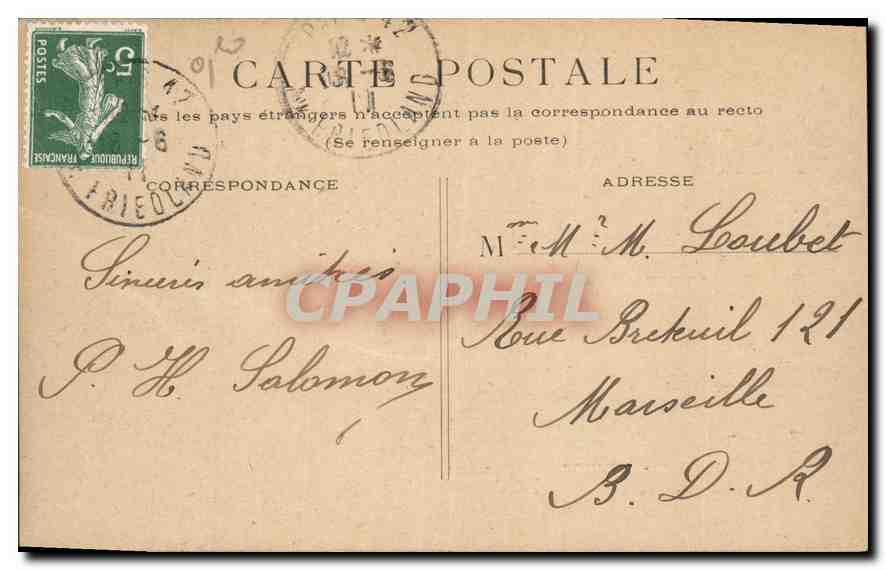 5c
POSTES
REPUBLIQUE
FRANÇAISE
CARTE POSTALE
les pays étrangers n'acceptent pas la correspondance au recto
(Se renseigner à la poste)
CORRESPONDANCE
Sincères amitiés
P. H. Salomon
ADRESSE
Mme Mr M. Loubet
Rue Breteuil 121
Marseille
B. D. R.
FRIEDLAND
FRIEDLAND
CPAPHIL